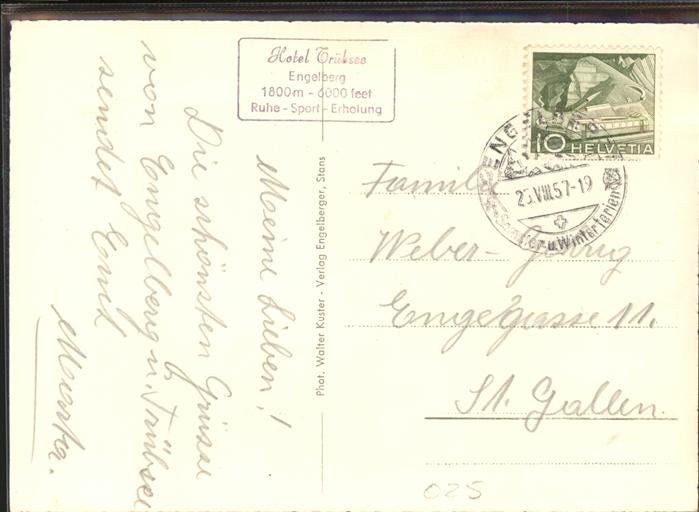 Hotel Trübsee
Engelberg
1800m - 6000 feet
Ruhe - Sport - Erholung
Meine Lieben!
Die schönsten Grüsse
von Engelberg u. Trübsee
sendet Euch
Phot. Walter Kuster - Verlag Engelberger, Stans
10 HELVETIA
ENGELBERG
25.VIII.57-19
Sommer- u. Winterferien
Familie
Weber-
Engelgasse 11.
St. Gallen.
025